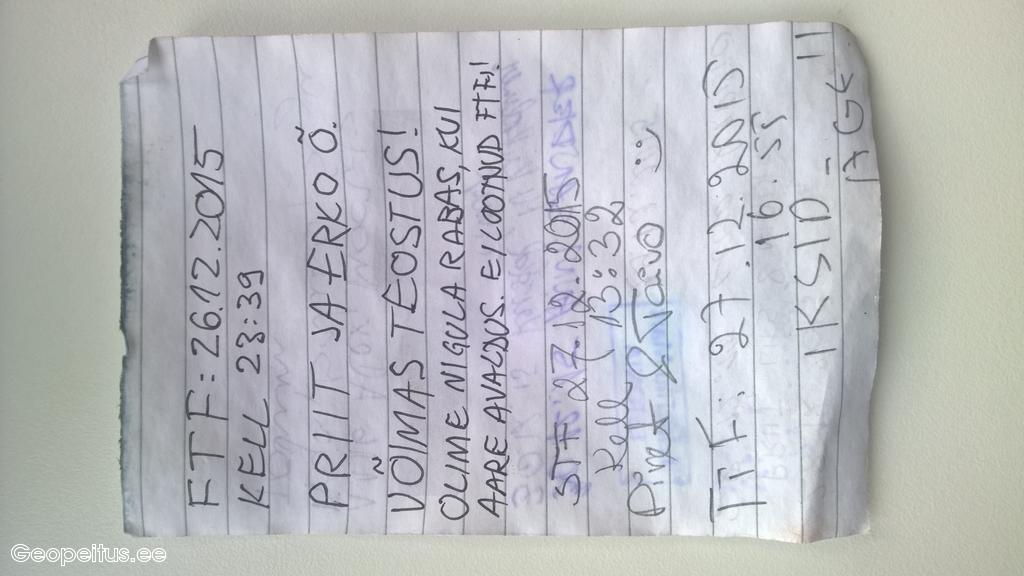 FTF: 26.12.2015
KELL 23:39
PRIIT JA ERKO Õ.
VÕIMAS TEOSTUS!
OLIME NIGULA RABAS, KUI
AARE AVALDUS. EI LOOTNUD FTFi!
STF: 27.12.2015
Kell 13:32
Piret & Taivo :)
TTF: 27.12.2015
16:55
Geopeitus.ee